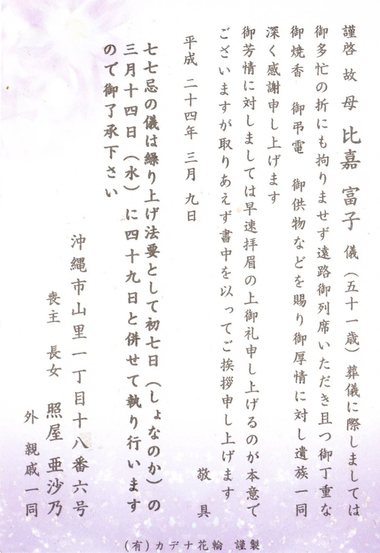 謹啓 故 母 比嘉 富子 儀(五十一歳)葬儀に際しましては
御多忙の折にも拘りませず遠路御列席いただき且つ御丁重な
御焼香 御弔電 御供物などを賜り御厚情に対し遺族一同
深く感謝申し上げます
御芳情に対しましては早速拝眉の上御礼申し上げるのが本意で
ございますが取りあえず書中を以ってご挨拶申し上げます
敬具
平成 二十四年 三月 九日
七七忌の儀は繰り上げ法要として初七日(しょなのか)の
三月十四日(水)に四十九日と併せて執り行います
ので御了承下さい
沖縄市山里一丁目十八番六号
喪主 長女 照屋 亜沙乃
外 親戚一同
(有)カデナ花輪 謹製